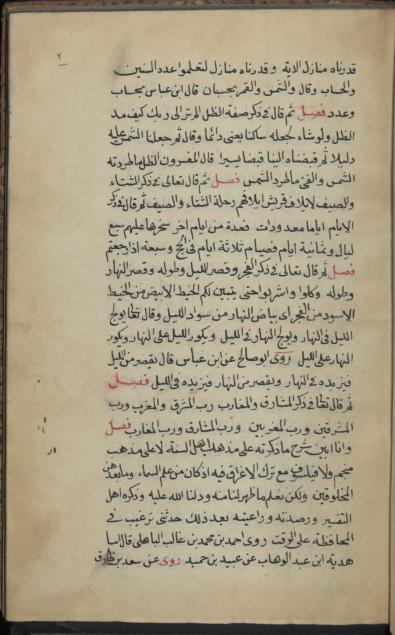 ٣
قدرناه منازل الاية وقدرناه منازل لتعلموا عدد السنين
والحساب وقال والشمس والقمر بحسبان قال ابن عباس بحساب
وعدد فصل ثم قال في ذكر صفة الظل الم تر الى ربك كيف مد
الظل ولو شاء لجعله ساكنا يعني دائما وقال ثم جعلنا الشمس عليه
دليلا ثم قبضناه الينا قبضا يسيرا قال المفسرون الظل ما طردته
الشمس والفئ ما طرد الشمس فصل ثم قال تعالى في ذكر الشتاء
والصيف لايلاف قريش ايلافهم رحلة الشتاء والصيف ثم قال في ذكر
الايام اياما معدودات فعدة من ايام اخر سخرها عليهم سبع
ليال وثمانية ايام فصيام ثلاثة ايام في الحج وسبعة اذا رجعتم
فصل ثم قال تعالى في ذكر الفجر وقصر الليل وطوله وقصر النهار
وطوله وكلوا واشربوا حتى يتبين لكم الخيط الابيض من الخيط
الاسود من الفجر اي بياض النهار من سواد الليل وقال تعالى يولج
الليل في النهار ويولج النهار في الليل ويكور الليل على النهار ويكور
النهار على الليل روى ابو صالح عن ابن عباس قال يقصر من الليل
فيزيده في النهار ويقصر من النهار فيزيده في الليل فصل
ثم قال تعالى في ذكر المشارق والمغارب رب المشرق والمغرب ورب
المشرقين ورب المغربين ورب المشارق ورب المغارب فصل
وانا ابين شرح ما ذكرته على مذهب اهل السنة لا على مذهب
منجم ولا فيلسوف مع ترك الاغراق فيه اذ كان من علم السماء وما بعد عن
المخلوقين ولكن نعلم ما ظهر لنا منه ودلنا الله عليه وذكره اهل
التفسير ورصدته وراعيته بعد ذلك حدثني ترغيب في
المحافظة على الوقت روى احمد بن محمد بن غالب الباهلي قال انبا
هدية ابن عبد الوهاب عن عبيد بن حميد روى عن سعد بن طارق